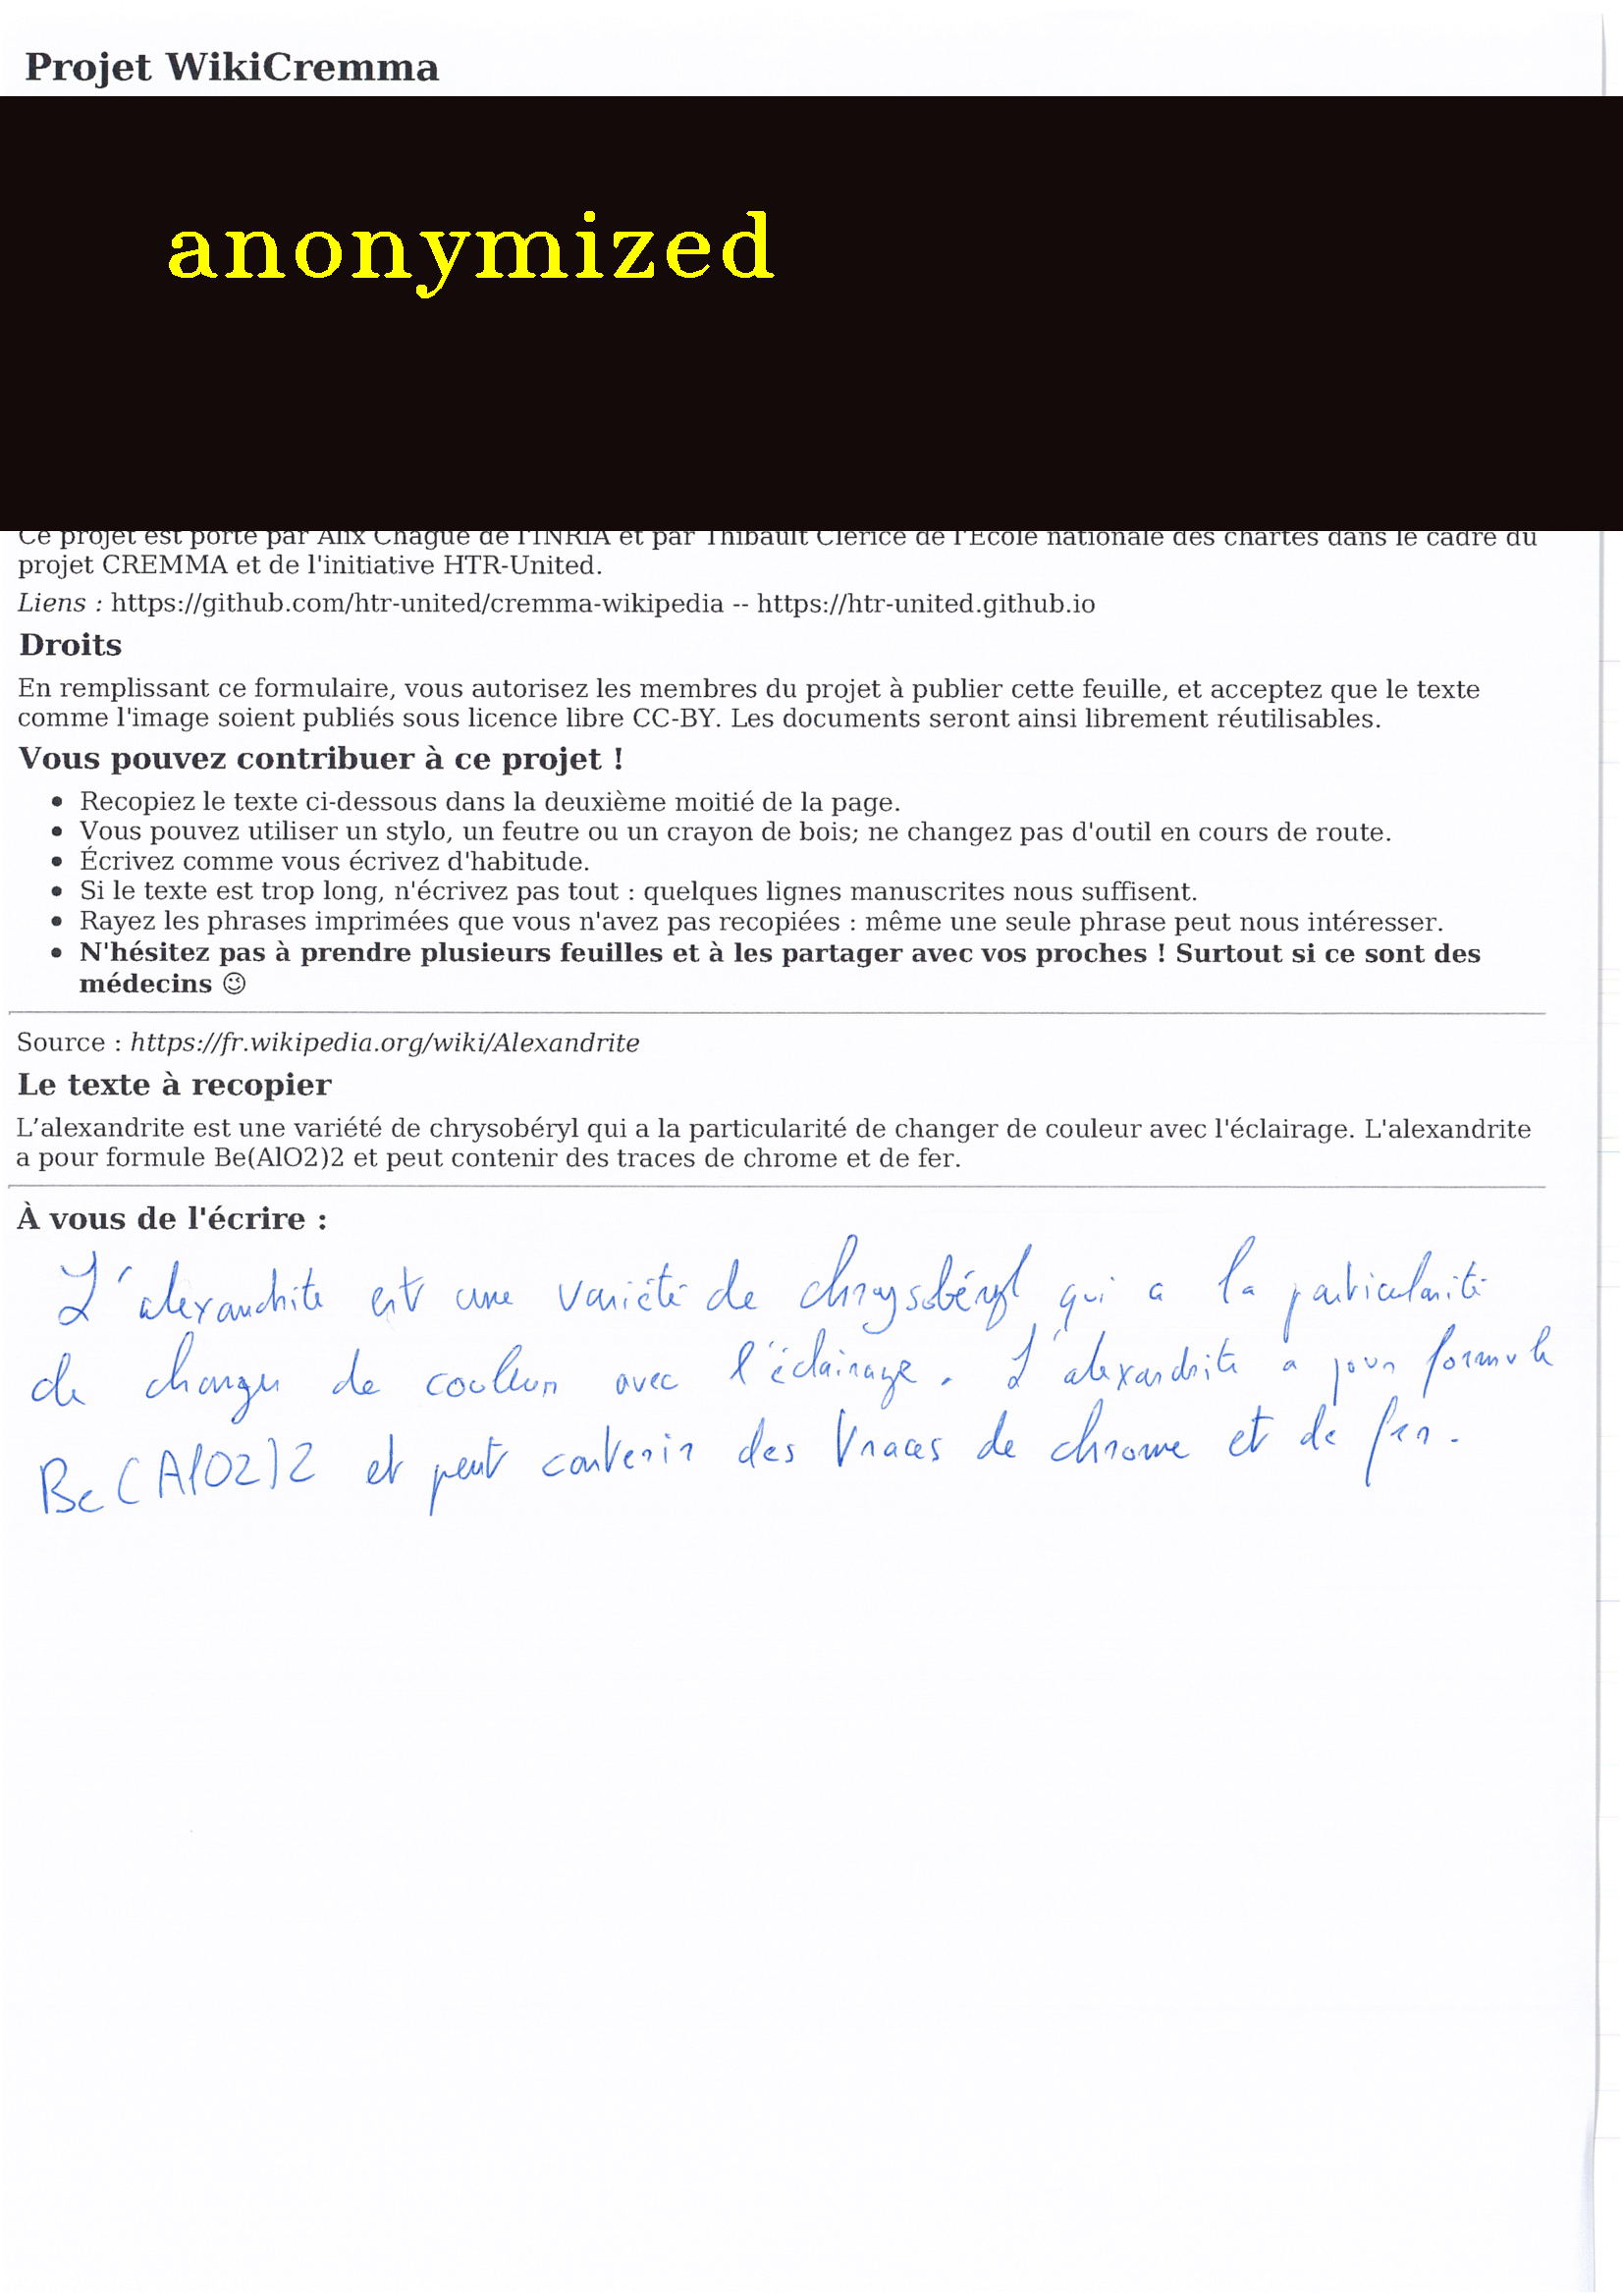 Projet WikiCremma
anonymized
Ce projet est porté par Alix Chagué de l'INRIA et par Thibault Clérice de l'École nationale des chartes dans le cadre du
projet CREMMA et de l'initiative HTR-United.
Liens : https://github.com/htr-united/cremma-wikipedia -- https://htr-united.github.io
Droits
En remplissant ce formulaire, vous autorisez les membres du projet à publier cette feuille, et acceptez que le texte
comme l'image soient publiés sous licence libre CC-BY. Les documents seront ainsi librement réutilisables.
Vous pouvez contribuer à ce projet !
• Recopiez le texte ci-dessous dans la deuxième moitié de la page.
• Vous pouvez utiliser un stylo, un feutre ou un crayon de bois; ne changez pas d'outil en cours de route.
• Écrivez comme vous écrivez d'habitude.
• Si le texte est trop long, n'écrivez pas tout : quelques lignes manuscrites nous suffisent.
• Rayez les phrases imprimées que vous n'avez pas recopiées : même une seule phrase peut nous intéresser.
• N'hésitez pas à prendre plusieurs feuilles et à les partager avec vos proches ! Surtout si ce sont des
médecins 😉
Source : https://fr.wikipedia.org/wiki/Alexandrite
Le texte à recopier
L’alexandrite est une variété de chrysobéryl qui a la particularité de changer de couleur avec l'éclairage. L'alexandrite
a pour formule Be(AlO2)2 et peut contenir des traces de chrome et de fer.
À vous de l'écrire :
L'alexandrite est une variété de chrysobéryl qui a la particularité
de changer de couleur avec l'éclairage. L'alexandrite a pour formule
Be(AlO2)2 et peut contenir des traces de chrome et de fer.